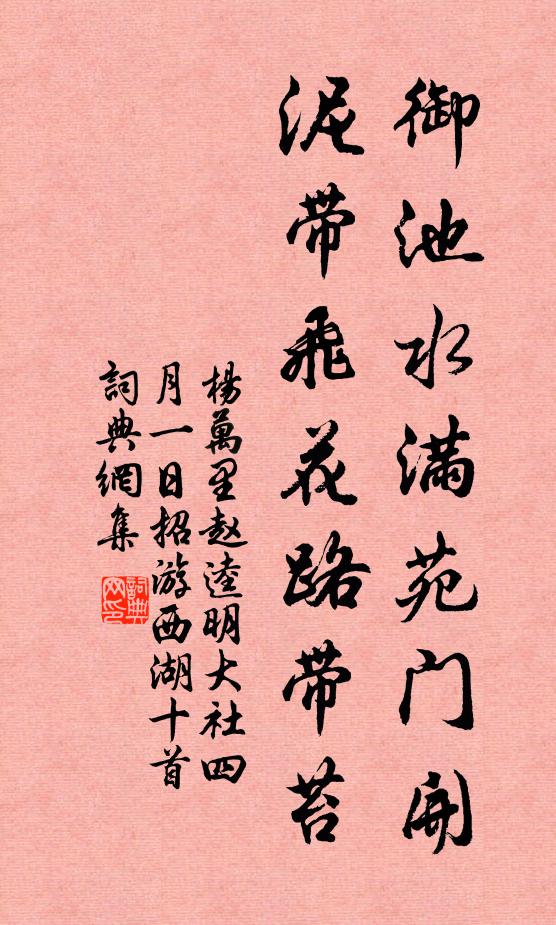 御池水满苑门開
泥带飛花路带苔
楊萬里赵逵明大社四
月一日招游西湖十首
詞典網集
詞典
网印